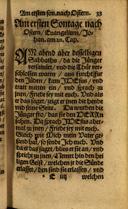 Am ersten son. nach Ostern. 33
Am ersten Sontage nach
Ostern, Euangelium, Jo-
han. am xx. Cap.
AM abend aber desselbigen
Sabbaths, da die Jünger
versamlet, und die thür ver-
schlossen waren, aus furcht für
den Jüden, kam JEsus, und
trat mitten ein, und sprach zu
jnen, Friede sey mit euch. Und als
er das saget, zeiget er jnen die hende
und seine Seite. Da wurden die
Jünger fro, das sie den HErrn
sahen. Da sprach JEsus aber-
mal zu jnen, Friede sey mit euch.
Gleich wie mich mein Vater ge-
sand hat, so sende ich euch. Und
da er das saget, blies er sie an, und
spricht zu jnen, Nemet hin den hei-
ligen Geist, welchen jr die Sünde
erlasset, den sind sie erlassen, und
welchen